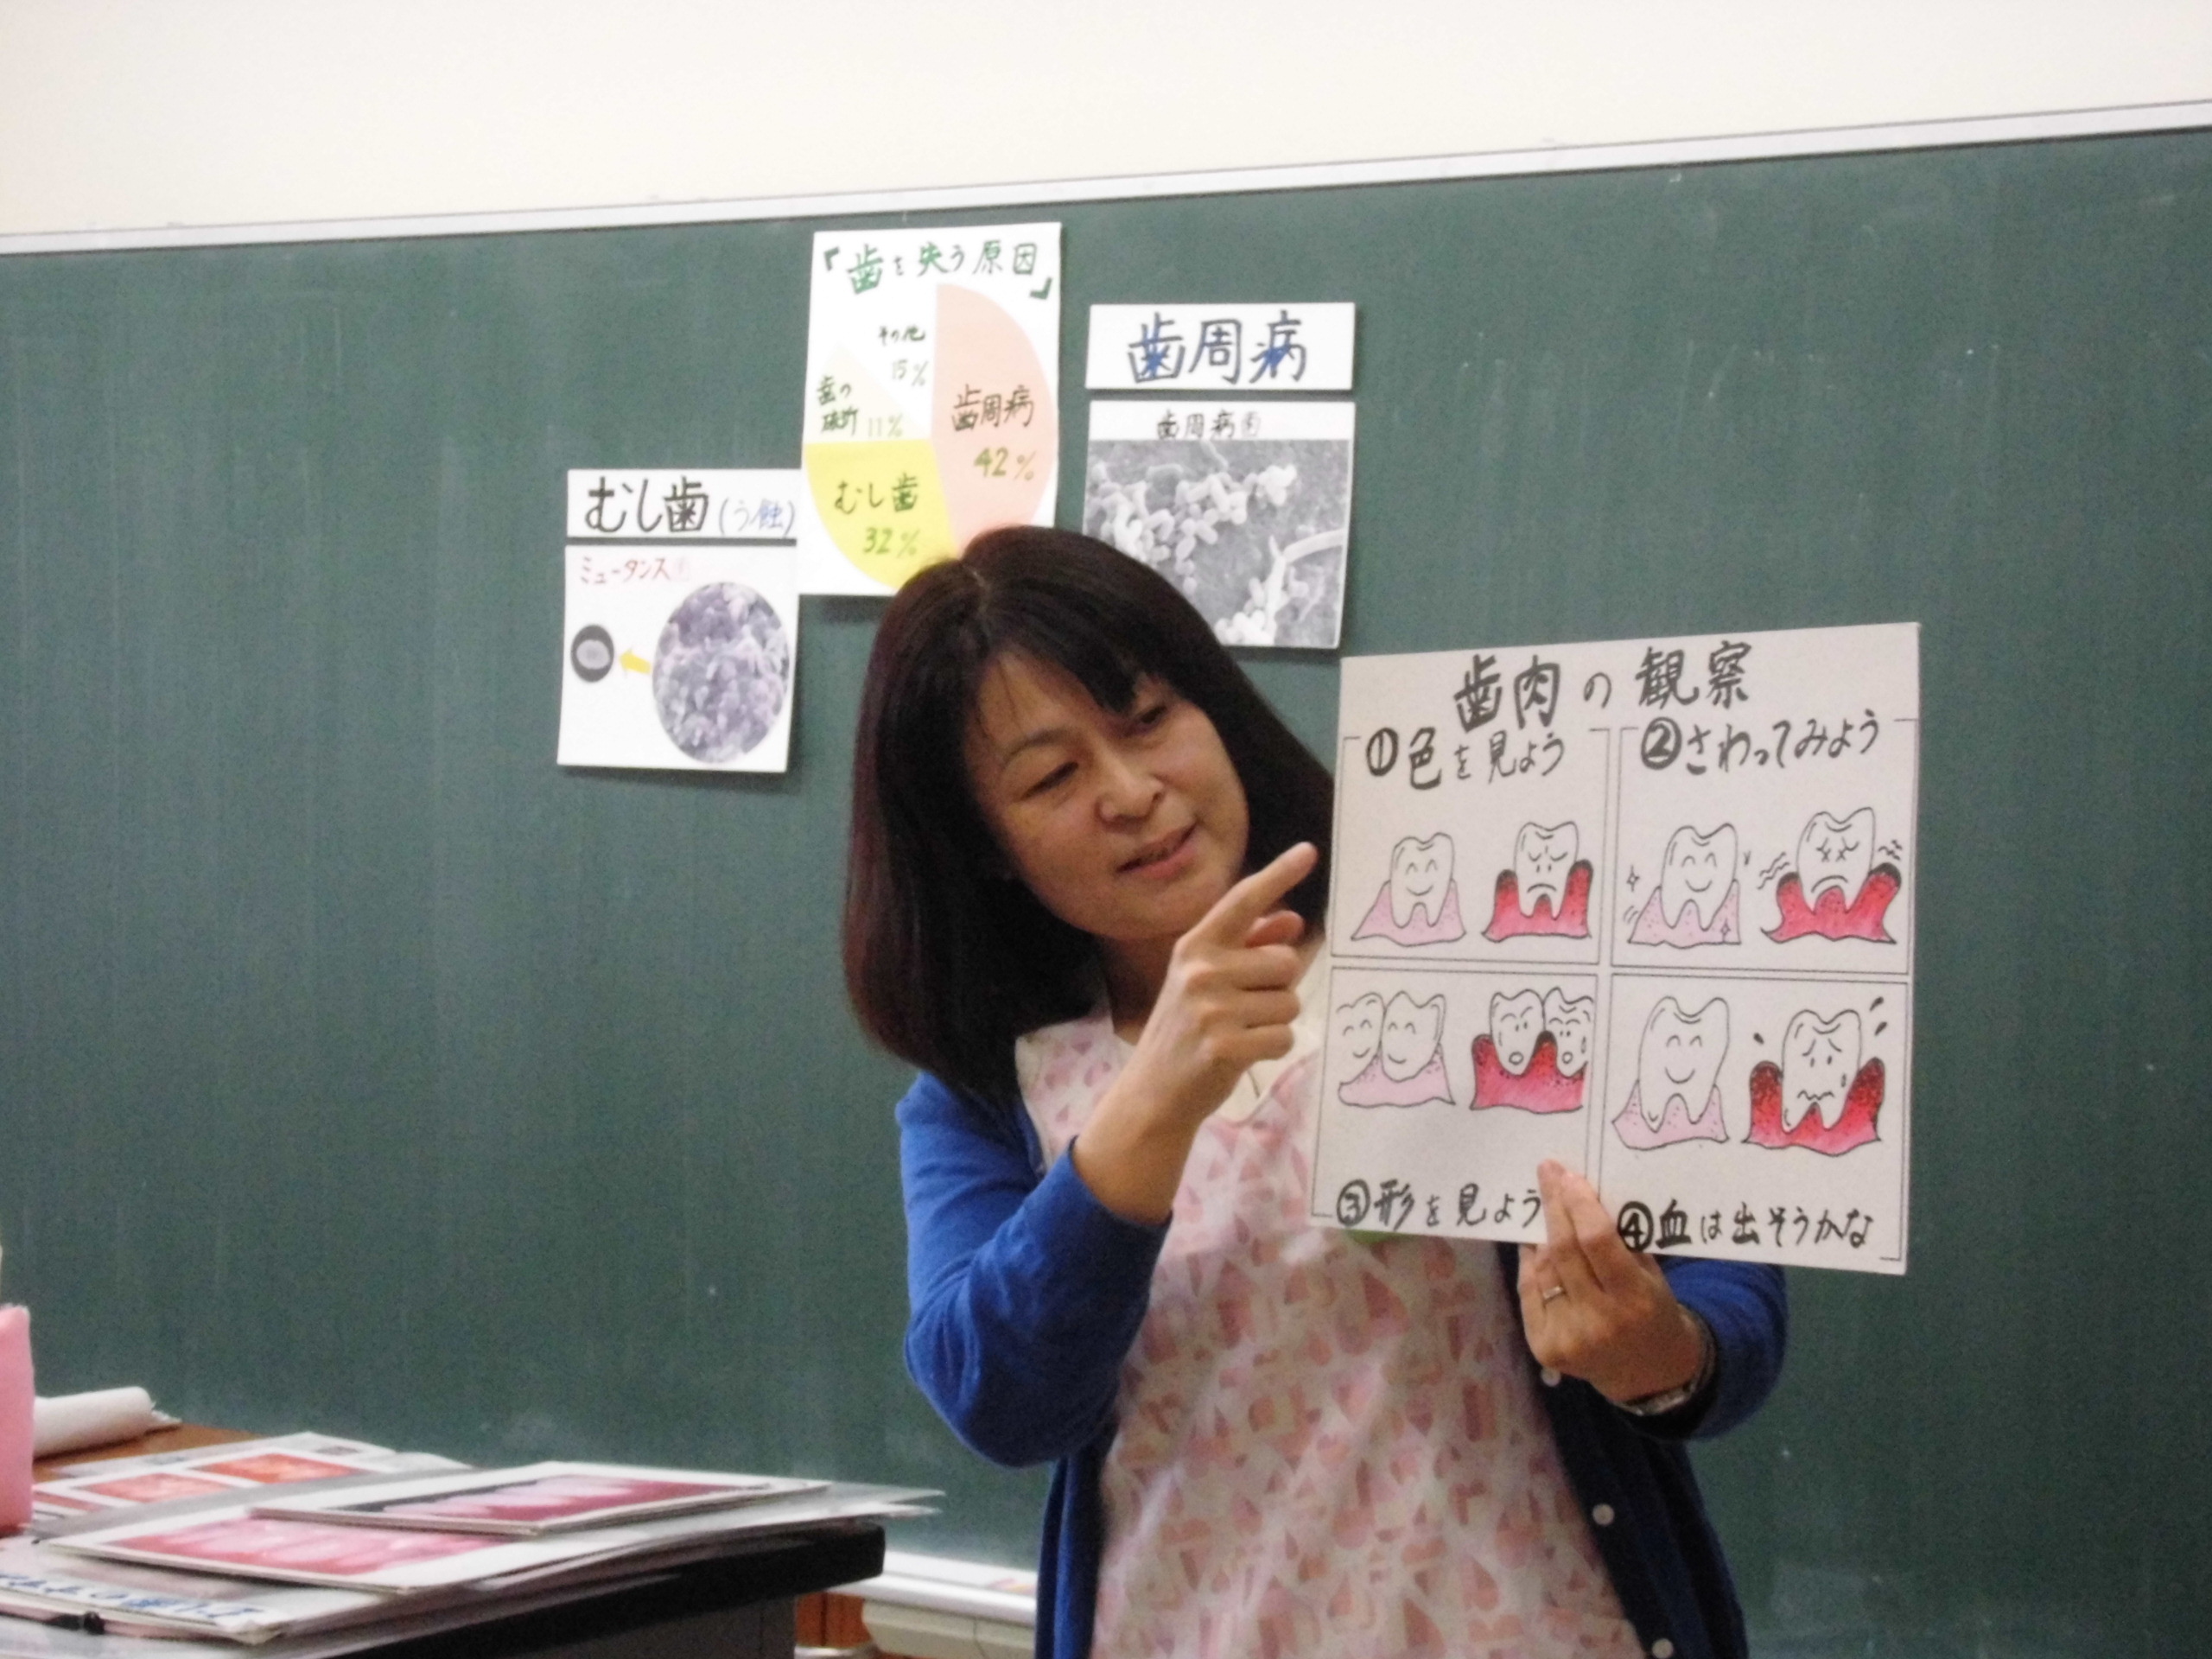 『歯を失う原因』
その他
15%
歯の
破折 11%
歯周病
42%
むし歯
32%
歯周病
歯周病菌
むし歯(う蝕)
ミュータンス菌
歯肉の観察
①色を見よう
②さわってみよう
③形を見よう
④血は出そうかな